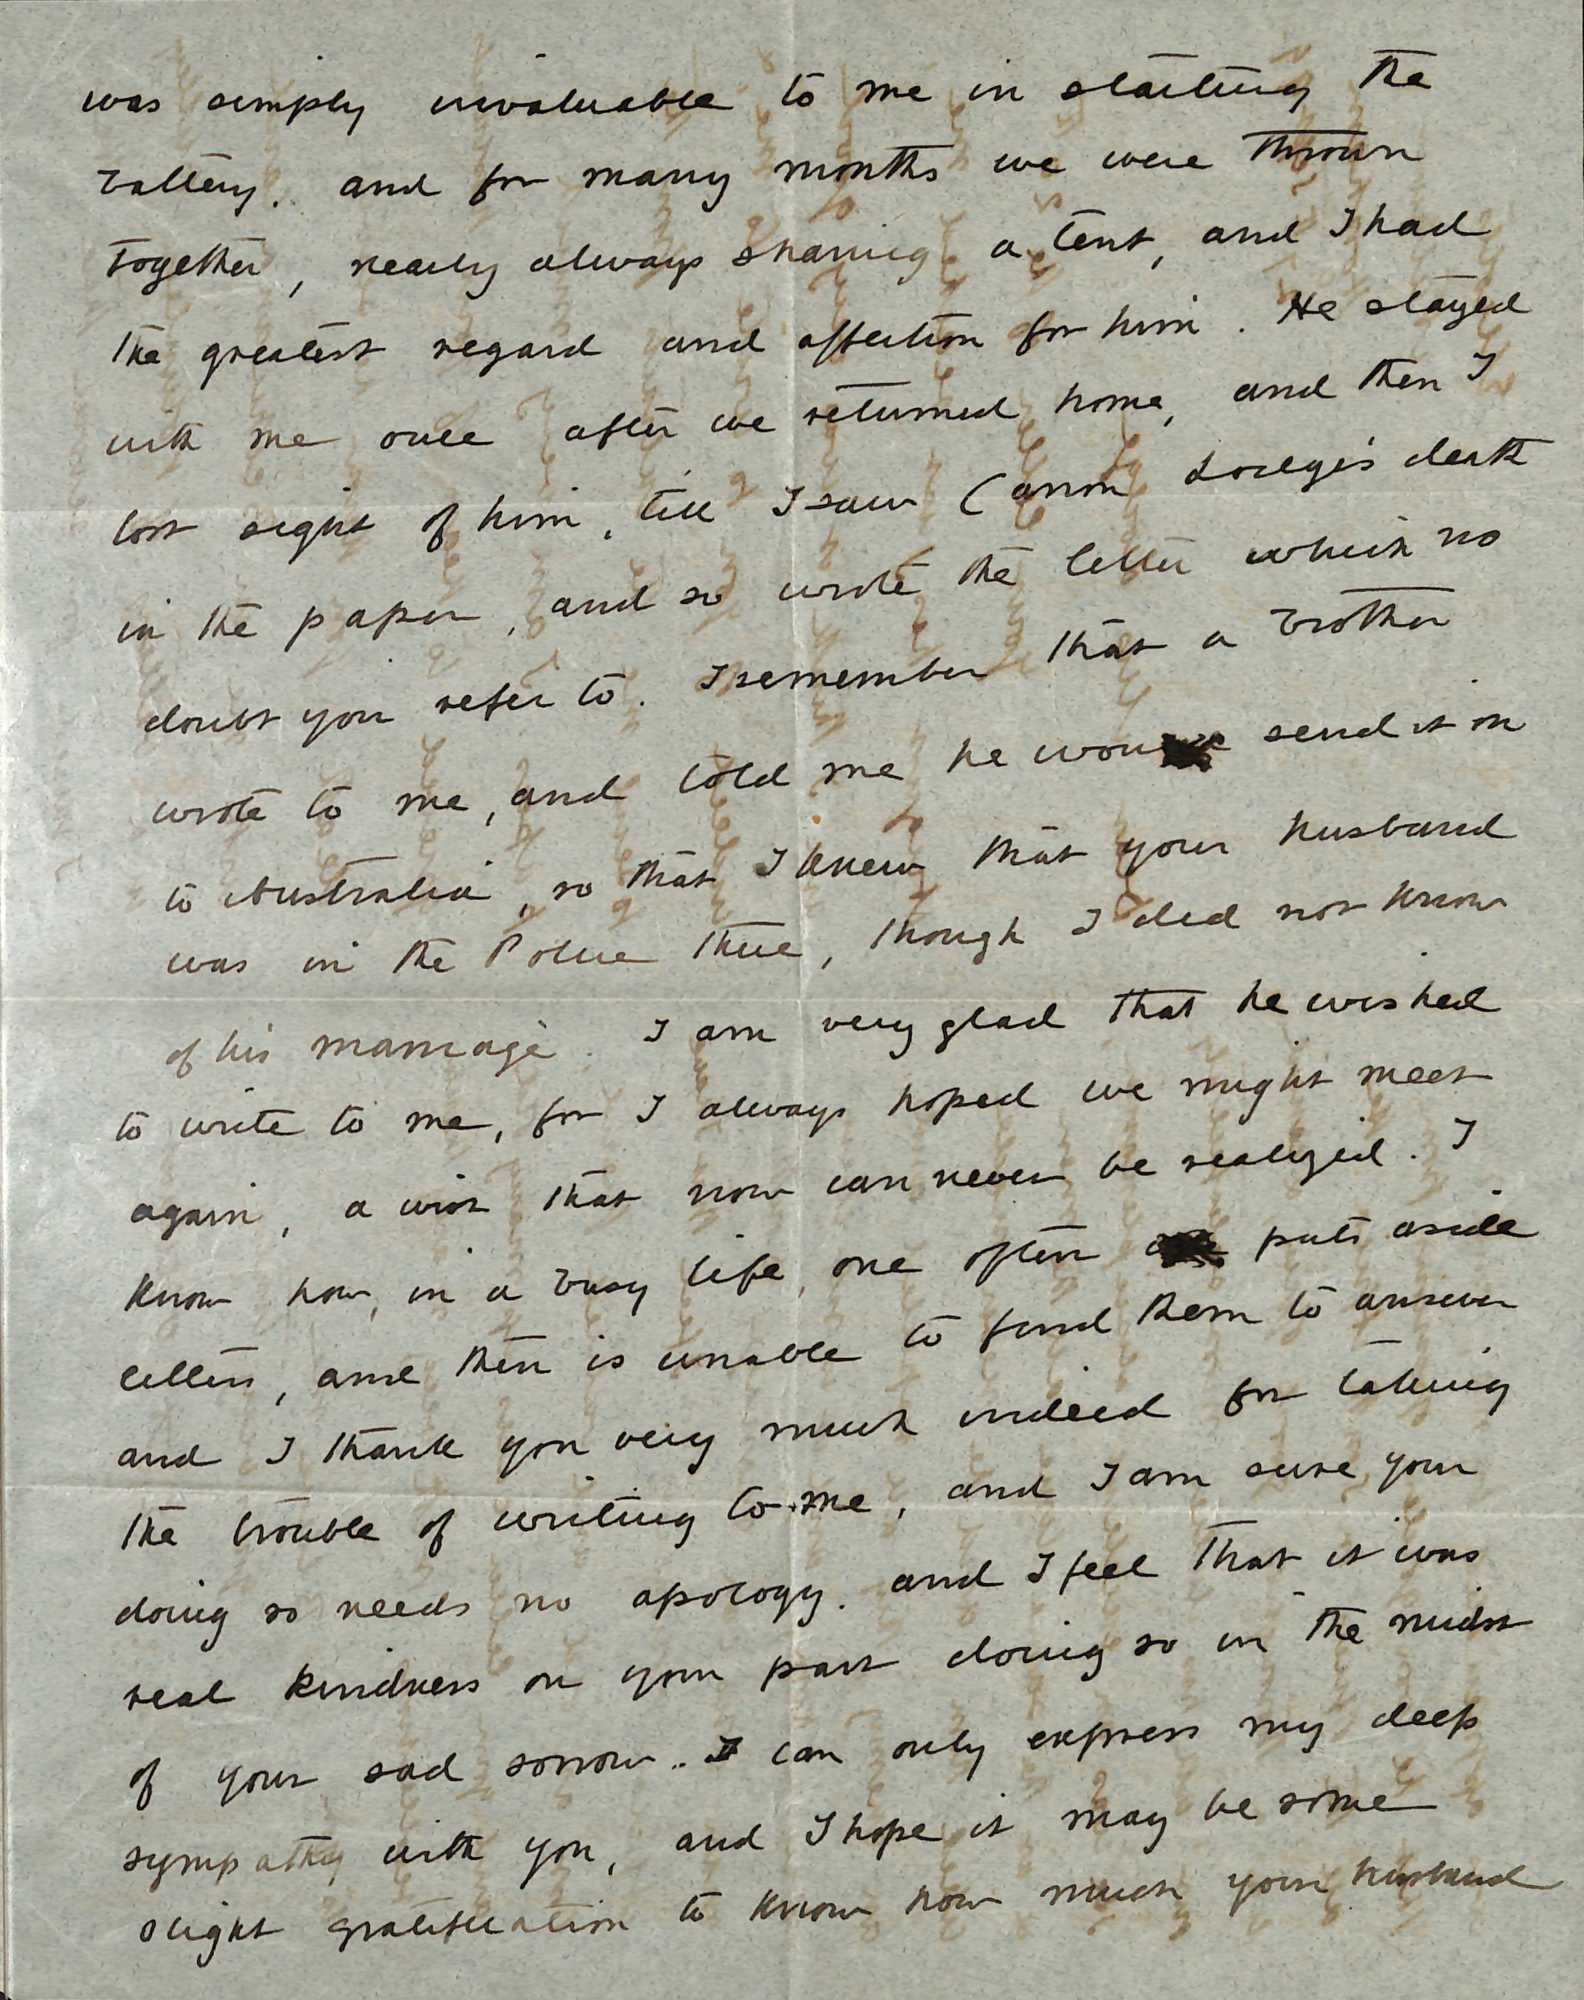 was simply invaluable to me in starting the
battery. and for many months we were thrown
together, nearly always sharing a tent, and I had
the greatest regard and affection for him. He stayed
with me once after we returned home, and then I
lost sight of him, till I saw Canon death
in the paper, and so wrote the letter which no
doubt you refer to. I remember that a brother
wrote to me, and told me he would send it on
to Australia, so that I knew that your husband
was in the Police there, though I did not know
of his marriage. I am very glad that he wished
to write to me, for I always hoped we might meet
again, a wish that now can never be realized. I
know how, in a busy life, one often puts aside
letters, and then is unable to find them to answer
and I thank you very much indeed for taking
the trouble of writing to me, and I am sure your
doing so needs no apology. and I feel that it was
real kindness on your part doing so in the midst
of your sad sorrow.. I can only express my deep
sympathy with you, and I hope it may be some
slight gratification to know how much your husband